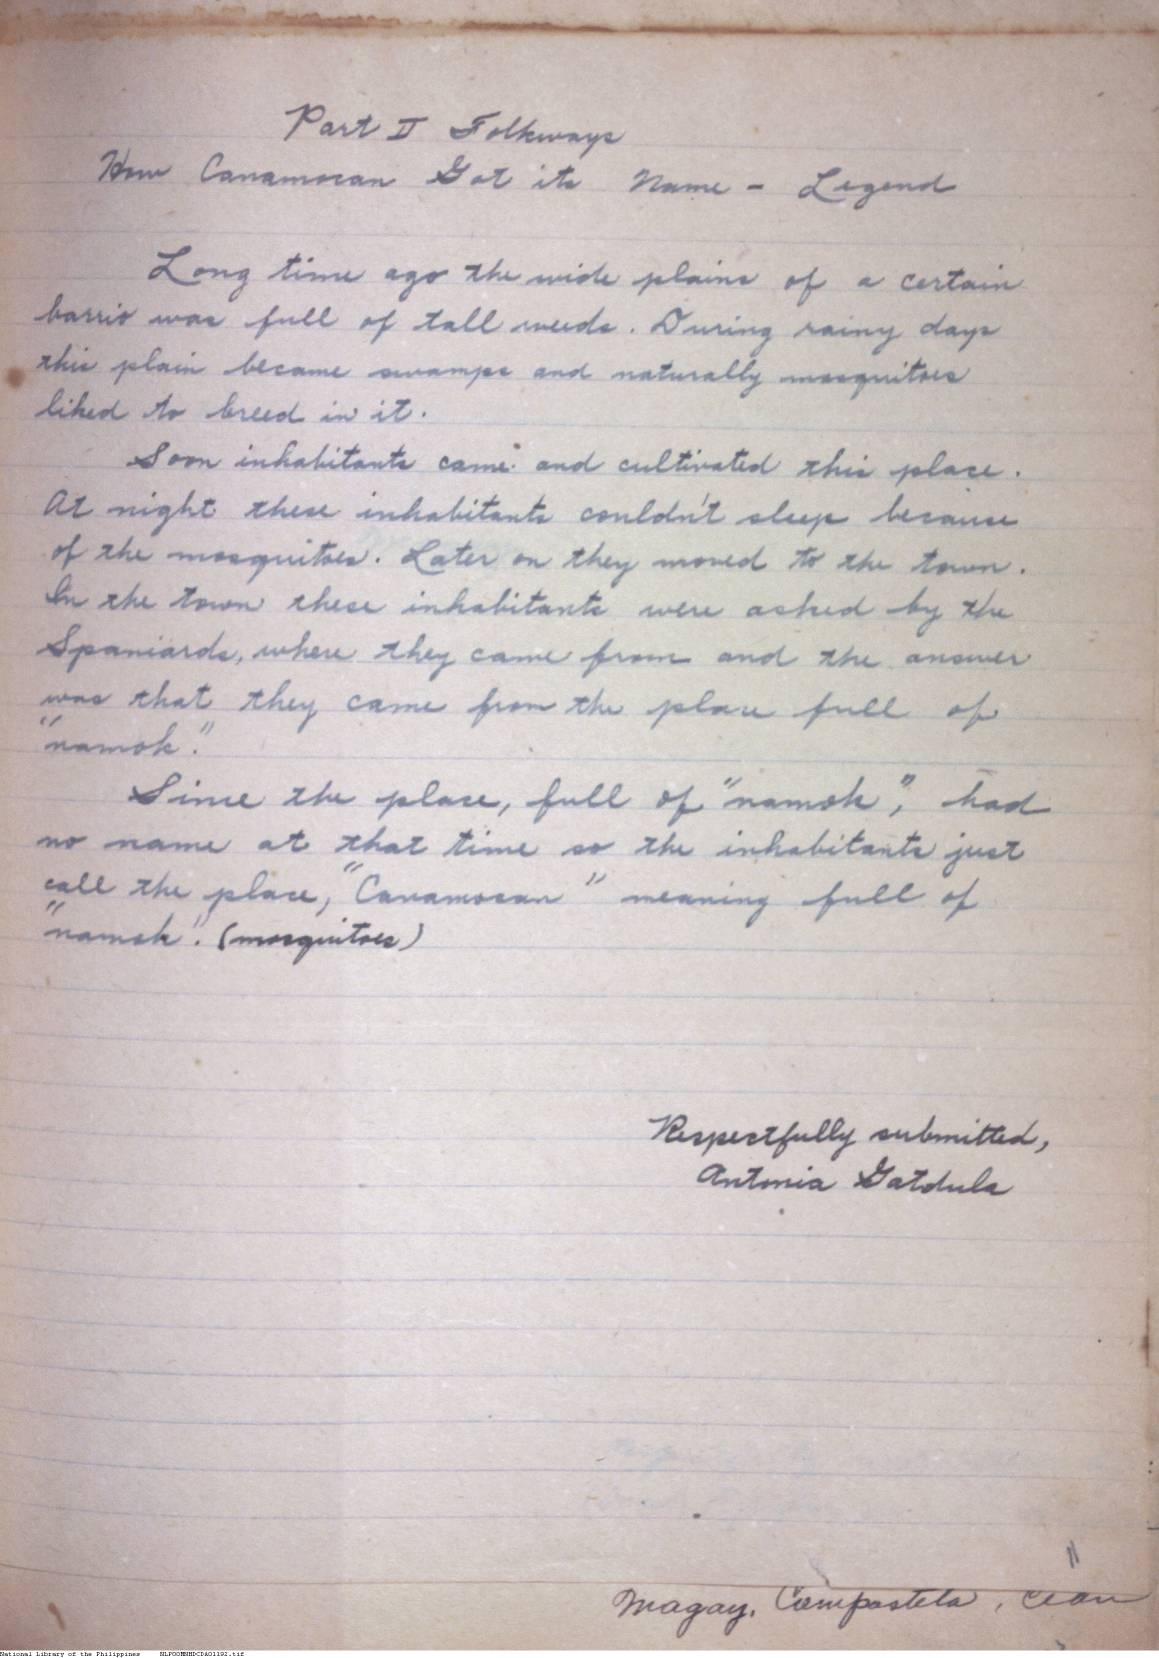 Part II Folkways
How Canamocan Got its Name - Legend
Long time ago the wide plains of a certain
barrio was full of tall weeds. During rainy days
this plain became swamps and naturally mosquitoes
liked to breed in it.
Soon inhabitants came and cultivated this place.
At night these inhabitants couldn't sleep because
of the mosquitoes. Later on they moved to the town.
In the town these inhabitants were asked by the
Spaniards, where they came from and the answer
was that they came from the place full of
"namok."
Since the place, full of "namok", had
no name at that time so the inhabitants just
call the place, "Canamocan" meaning full of
"namok". (mosquitoes)
Respectfully submitted,
Antonia Gatdula
Magay, Compostela,
National Library of the Philippines NLP00MNHDCDA01192.tif